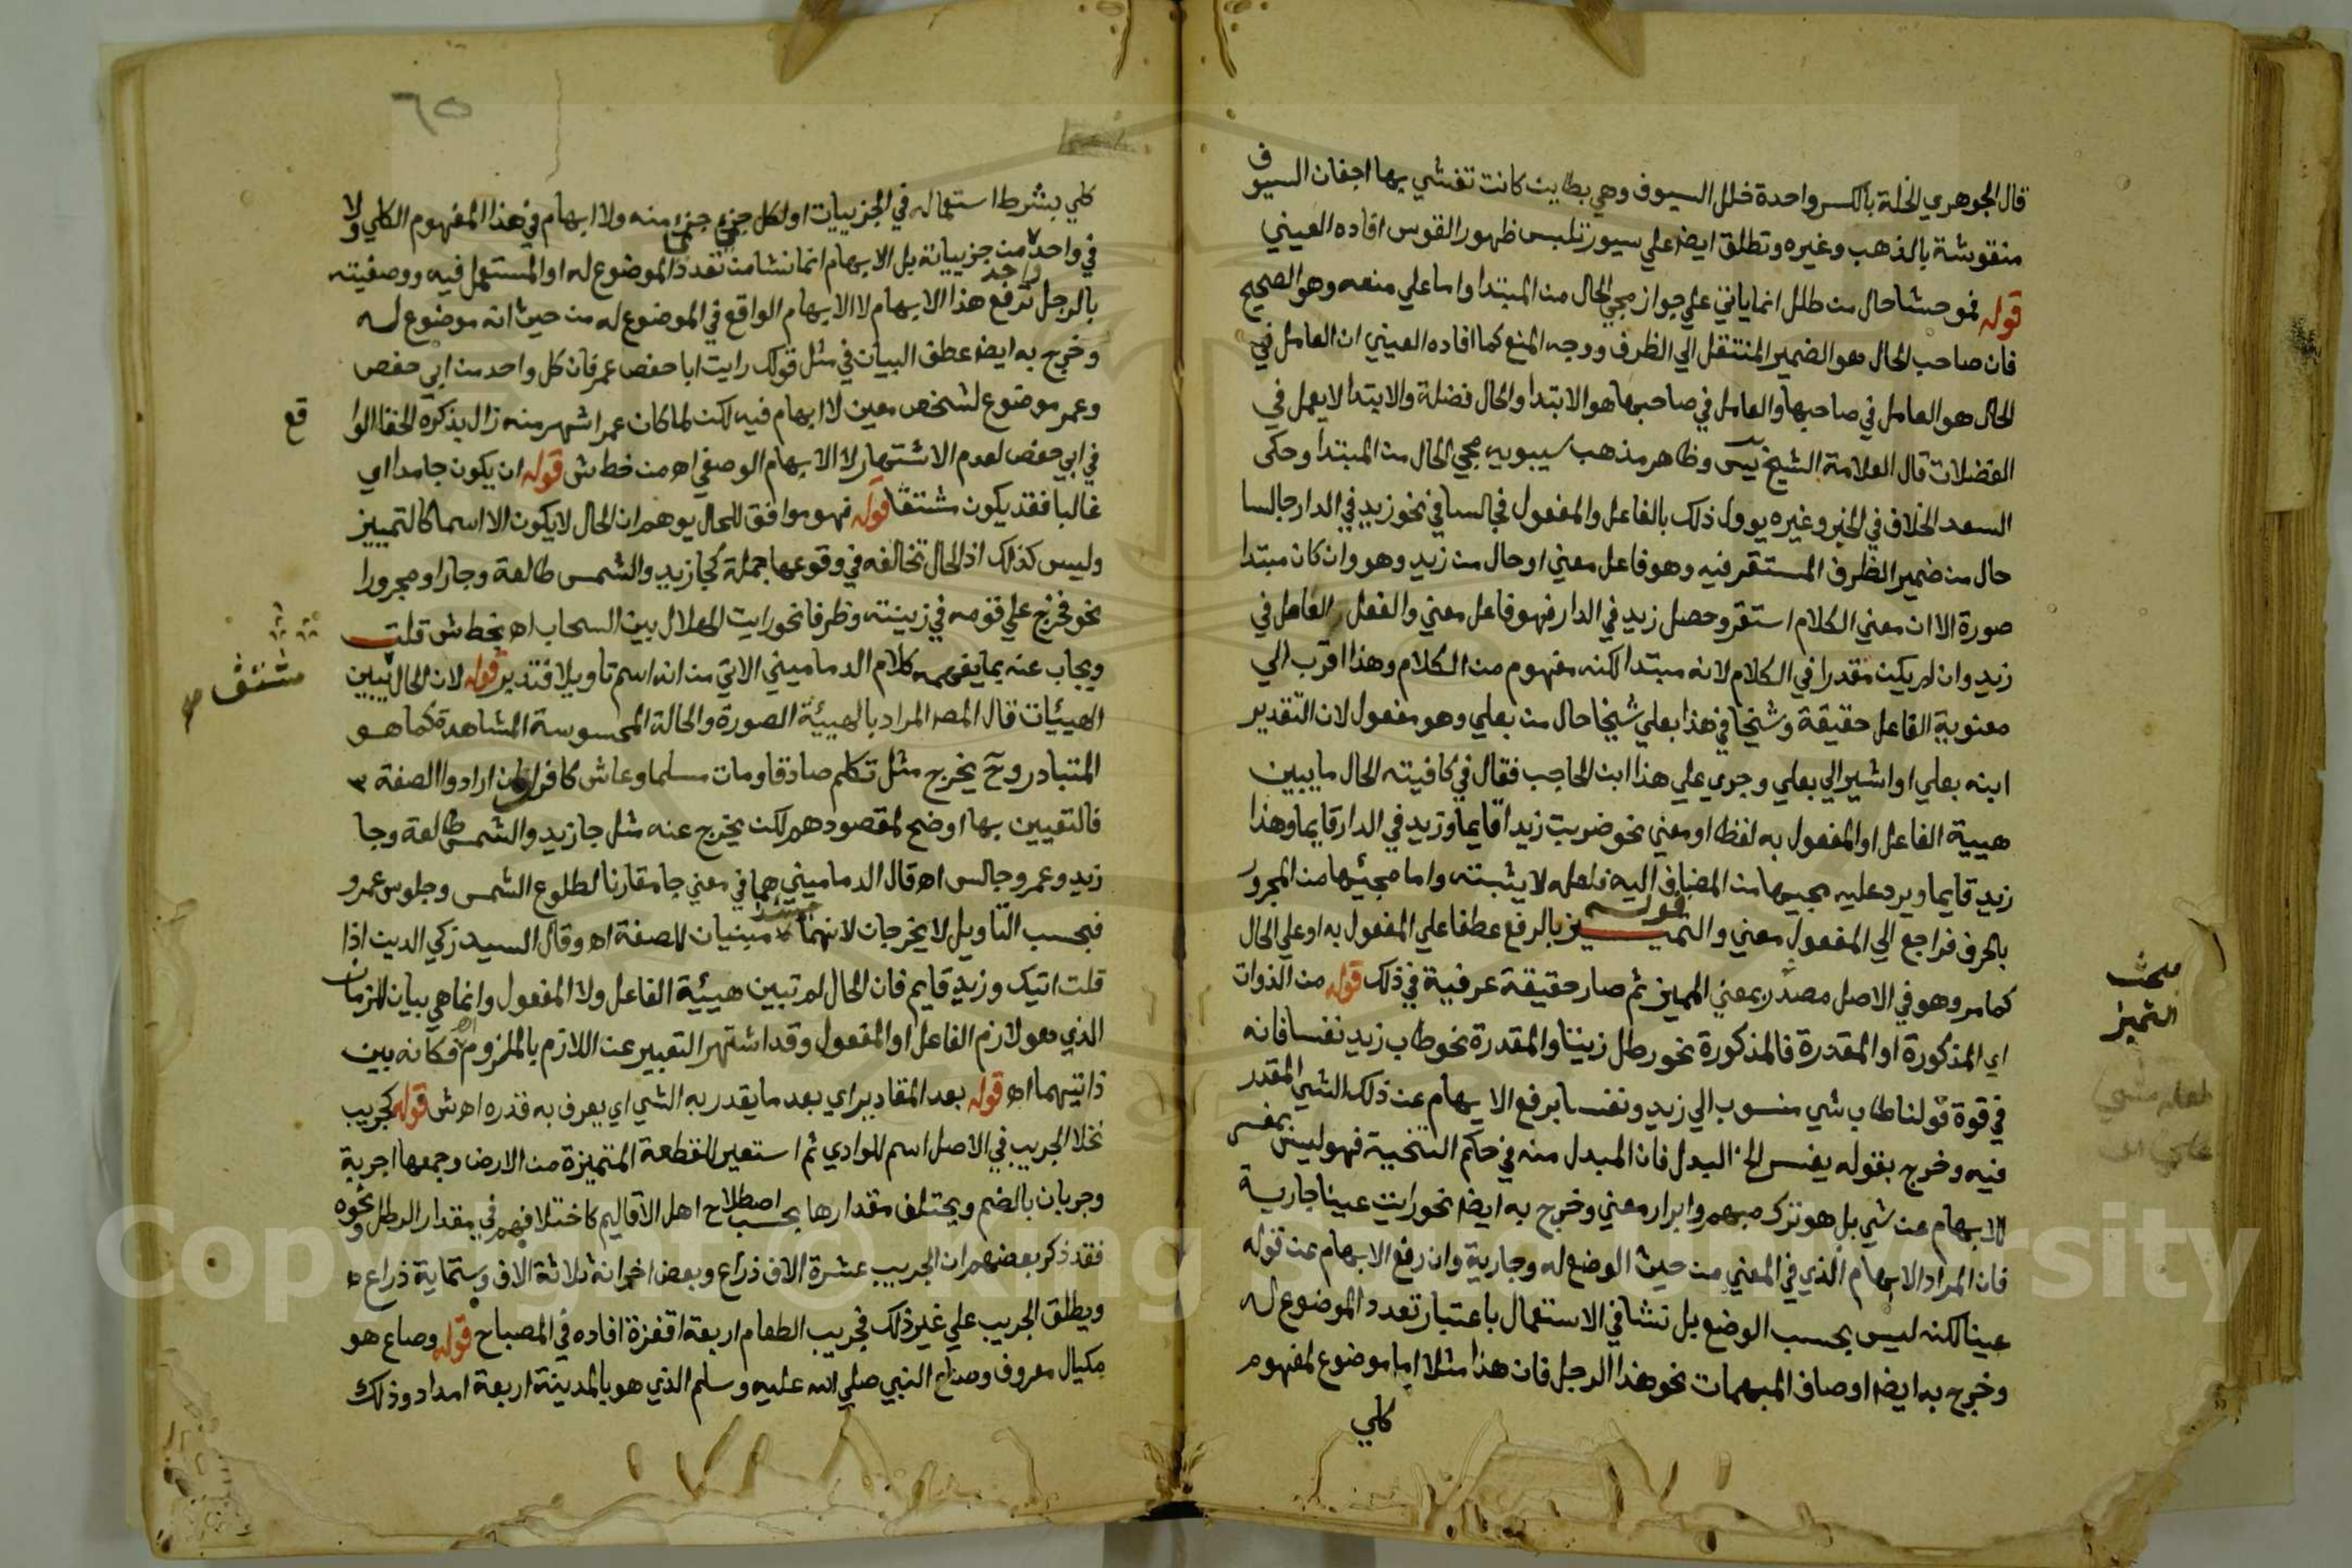 قال الجوهري الخلة بالكسر واحدة خلل السيوف وهي بطاين كانت تغشي بها اجفان السيوف
منقوشة بالذهب وغيره وتطلق ايضا علي سيور تلبس ظهور القوس افاده العيني
قوله لموحشا حال من طلل انما ياتي علي جواز مجي الحال من المبتدا واما علي منعه وهو الصحيح
فان صاحب الحال هو الضمير المنتقل الي الظرف ووجه المنع كما افاده العيني ان العامل في
الحال هو العامل في صاحبها والعامل في صاحبها هو الابتدا والحال فضلة والابتدا لا يعمل في
الفضلات قال العلامة الشيخ يس وظاهر مذهب سيبويه مجي الحال من المبتدا وحكى
السعد الخلاف في الخبر وغيره يوول ذلك بالفاعل والمفعول فجالسا في نحو زيد في الدار جالسا
حال من ضمير الظرف المستقر فيه وهو فاعل معني او حال من زيد وهو وان كان مبتدا
صورة الا ان معني الكلام استقر وحصل زيد في الدار فهو فاعل معني والفعل العامل في
زيد وان لم يكن مقدرا في الكلام لانه مبتدا لكنه مفهوم من الكلام وهذا اقرب الي
معنوية الفاعل حقيقة وشيخا في هذا بعلي شيخا حال من بعلي وهو مفعول لان التقدير
ابنه بعلي او اشير الي بعلي وجري علي هذا ابن الحاجب فقال في كافيته الحال ما يبين
هيية الفاعل او المفعول به لفظا او معني نحو ضربت زيدا قايما وزيد في الدار قايما وهذا
زيد قايما ويرد عليه مجيها من المضاف اليه فلعله لا يثبته واما مجيئها من المجرور
بالحرف فراجع الي المفعول معني قوله والتمييز بالرفع عطفا علي المفعول به او علي الحال
كما مر وهو في الاصل مصدر بمعني المميز ثم صار حقيقة عرفية في ذلك قوله من الذوات
اي المذكورة او المقدرة فالمذكورة نحو رطل زيتا والمقدرة نحو طاب زيد نفسا فانه
في قوة قولنا طاب شي منسوب الي زيد ونفسا يرفع الابهام عن ذلك الشي المقدر
فيه وخرج بقوله يفسر الخ البدل فان المبدل منه في حكم التنحية فهو ليس بمفسر
للابهام عن شي بل هو ترك مبهم وايراد معني وخرج به ايضا نحو رايت عينا جارية
فان المراد الابهام الذي في المعني من حيث الوضع له وجارية وان رفع الابهام عن قوله
عينا لكنه ليس بحسب الوضع بل نشا في الاستعمال باعتبار تعدد الموضوع له
وخرج به ايضا اوصاف المبهمات نحو هذا الرجل فان هذا مثلا اما موضوع لمفهوم
كلي
مبحث
التمييز
٦٥
كلي بشرط استعماله في الجزييات او لكل جزي جزي منه ولا ابهام في هذا المفهوم الكلي ولا
في واحد واحد من جزيياته بل الابهام انما نشا من تعدد الموضوع له او المستعمل فيه ووصفيته
بالرجل ترفع هذا الابهام لا الابهام الواقع في الموضوع له من حيث انه موضوع له
وخرج به ايضا عطف البيان في مثل قولك رايت ابا حفص عمر فان كل واحد من ابي حفص
وعمر موضوع لشخص معين لا ابهام فيه لكن لما كان عمر اشهر منه زال بذكره الخفا الوا
قع
في ابي حفص لعدم الاشتهار لا الابهام الوصفي اه من خط ش قوله ان يكون جامدا اي
غالبا فقد يكون مشتقا قوله فهو موافق للحال يوهم ان الحال لا يكون الا اسما كالتمييز
وليس كذلك اذ الحال تخالفه في وقوعها جملة كجا زيد والشمس طالعة وجارا ومجرورا
نحو فخرج علي قومه في زينته وظرفا نحو رايت الهلال بين السحاب اه بخط ش قلت
ويجاب عنه بما يفهمه كلام الدماميني الاتي من انه اسم تاويلا فتدبر قوله لان الحال يبين
الهييات قال المص المراد بالهيئة الصورة والحالة المحسوسة المشاهدة كما هو
المتبادر وح يخرج مثل تكلم صادقا ومات مسلما وعاش كافرا وان ارادوا الصفة
فالتعيين بها اوضح لمقصودهم لكن يخرج عنه مثل جا زيد والشمس طالعة وجا
زيد وعمرو جالس اه قال الدماميني هما في معني جا مقارنا لطلوع الشمس وجلوس عمرو
فبحسب التاويل لا يخرجان لانهما حينئذ مبنيان للصفة اه وقال السيد زكي الدين اذا
قلت اتيك وزيد قايم فان الحال لم تبين هيئية الفاعل ولا المفعول وانما هي بيان للزمان
الذي هو لازم الفاعل او المفعول وقد اشتهر التعبير عن اللازم بالملزوم اه فكانه بين
ذاتيهما اه قوله بعد المقادير اي بعد ما يقدر به الشي اي يعرف به قدره اه ش قوله كجريب
نخلا الجريب في الاصل اسم للوادي ثم استعير للقطعة المتميزة من الارض وجمعها اجربة
وجربان بالضم ويختلف مقدارها بحسب اصطلاح اهل الاقاليم كاختلافهم في مقدار الرطل ونحوه
فقد ذكر بعضهم ان الجريب عشرة الاف ذراع وبعض اخر انه ثلاثة الاف وستماية ذراع
ويطلق الجريب علي غير ذلك فجريب الطعام اربعة اقفزة افاده في المصباح قوله وصاع هو
مكيال معروف وصاع النبي صلي الله عليه وسلم الذي هو بالمدينة اربعة امداد وذلك
Copyright © King Saud University